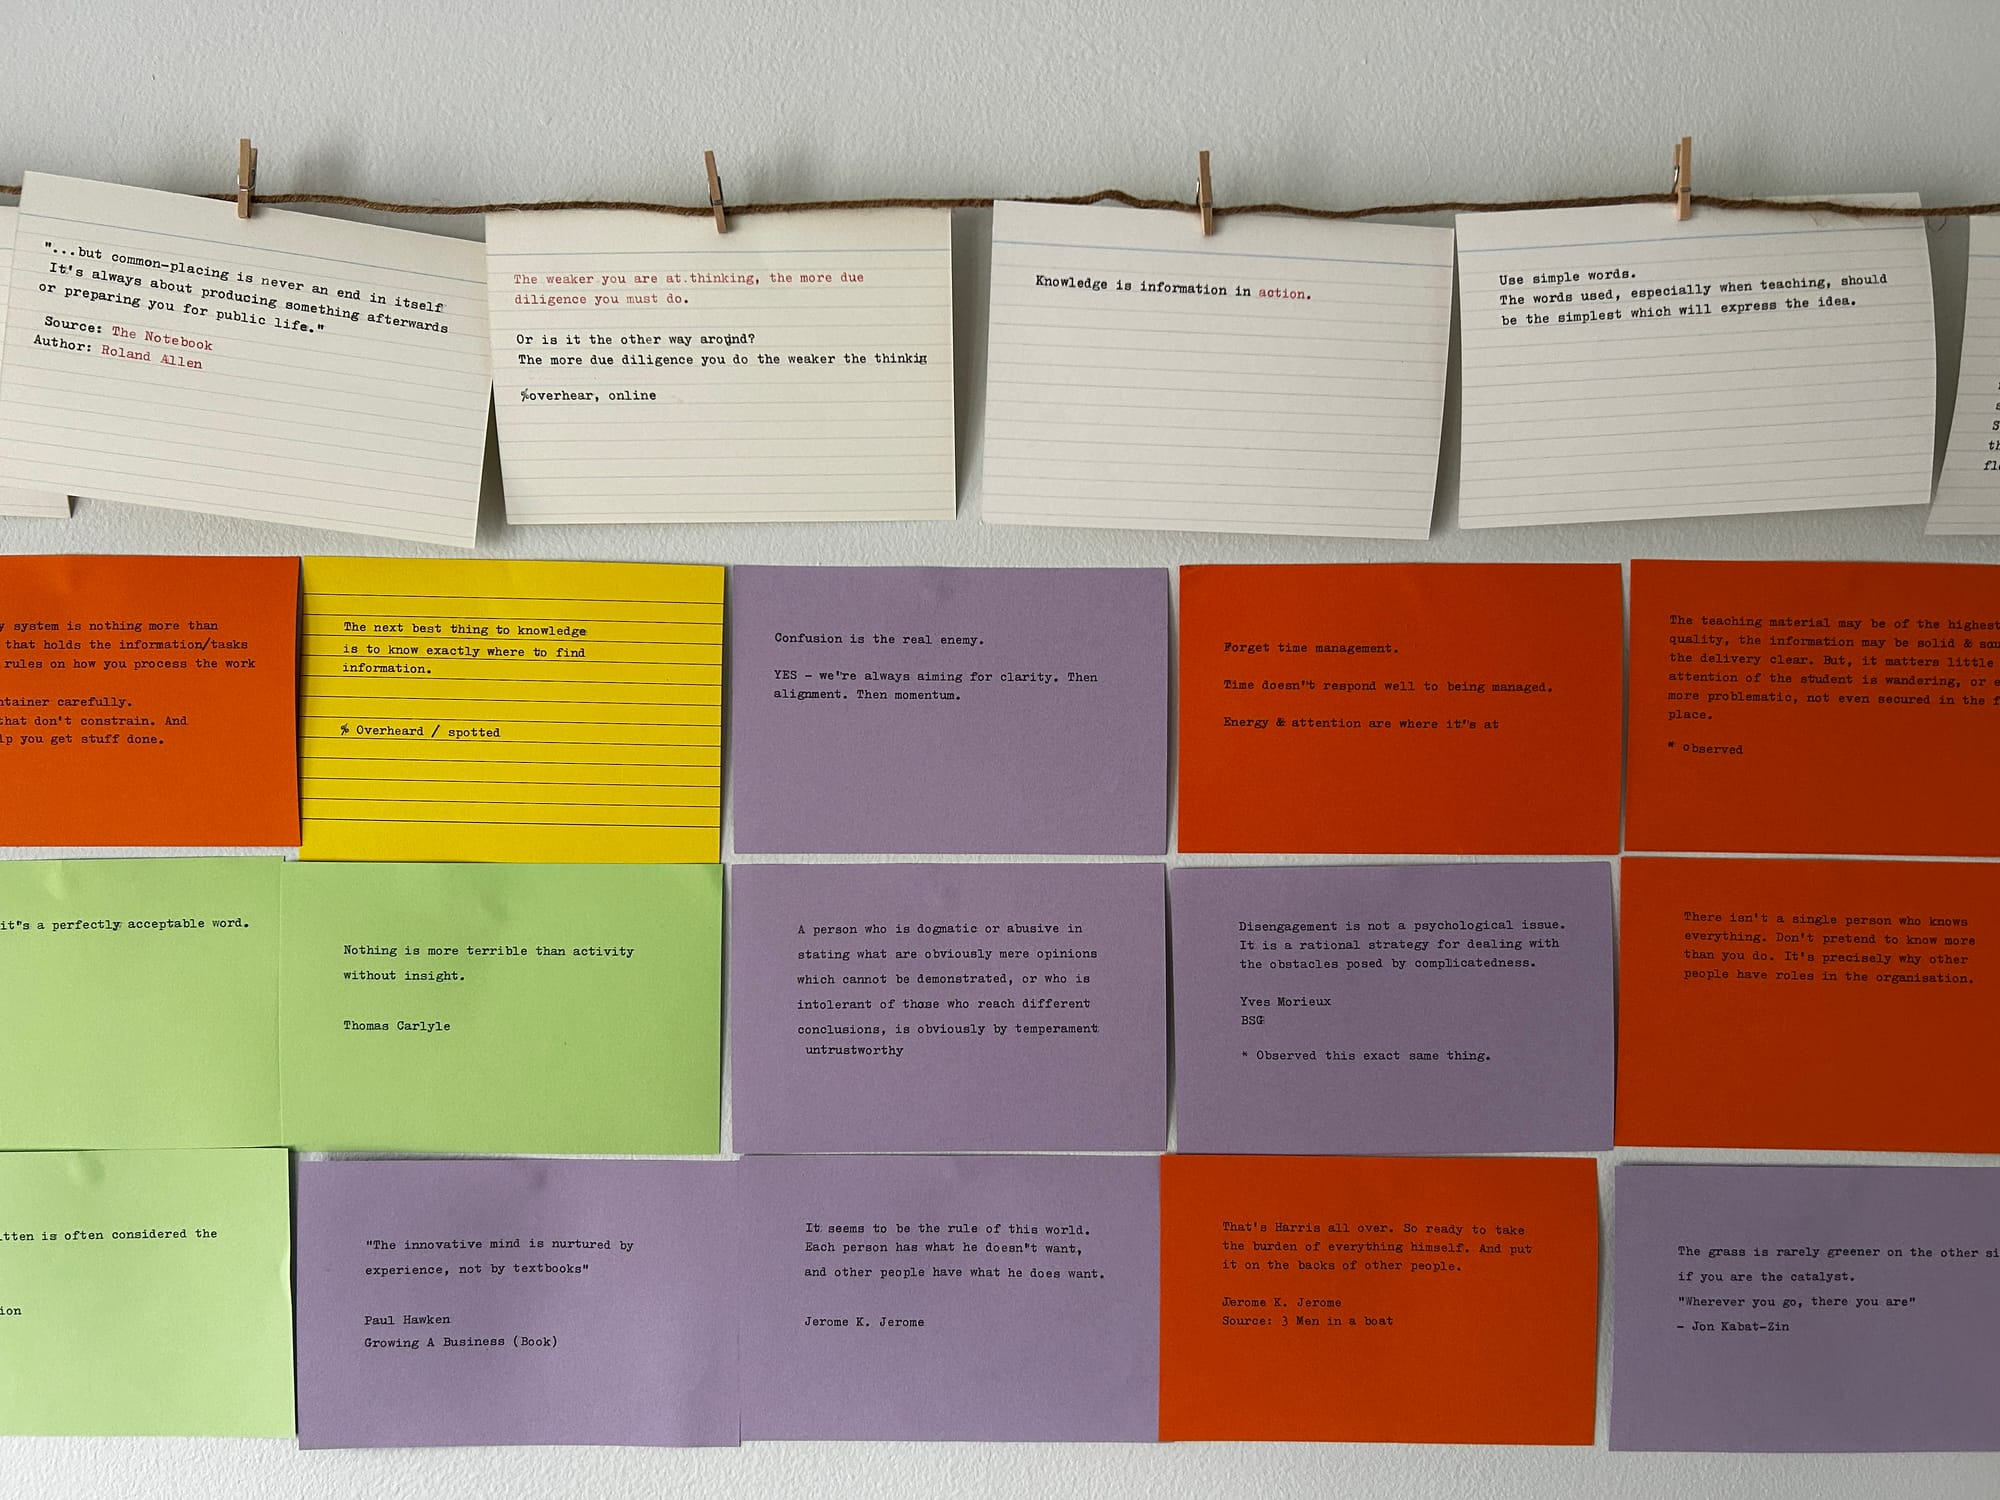 "...but common-placing is never an end in itself
It's always about producing something afterwards
or preparing you for public life."
Source: The Notebook
Author: Roland Allen
The weaker you are at.thinking, the more due
diligence you must do.
Or is it the other way around?
The more due diligence you do the weaker the thinkig
%overhear, online
Knowledge is information in action.
Use simple words.
The words used, especially when teaching, should
be the simplest which will express the idea.
th
system is nothing more than
that holds the information/tasks
rules on how you process the work
carefully.
that don't constrain. And
you get stuff done.
The next best thing to knowledge
is to know exactly where to find
information.
% Overheard / spotted
Confusion is the real enemy.
YES - we"re always aiming for clarity. Then
alignment. Then momentum.
Forget time management.
Time doesn"t respond well to being managed.
Energy & attention are where it"s at
The teaching material may be of the highest
quality, the information may be solid &
the delivery clear. But, it matters little
attention of the student is wandering, or
more problematic, not even secured in the
place.
* observed
it"s a perfectly acceptable word.
Nothing is more terrible than activity
without insight.
Thomas Carlyle
A person who is dogmatic or abusive in
stating what are obviously mere opinions
which cannot be demonstrated, or who is
intolerant of those who reach different
conclusions, is obviously by temperament
untrustworthy
Disengagement is not a psychological issue.
It is a rational strategy for dealing with
the obstacles posed by complicatedness.
Yves Morieux
BSG
* Observed this exact same thing.
There isn't a single person who knows
everything. Don't pretend to know more
than you do. It's precisely why other
people have roles in the organisation.
is often considered the
"The innovative mind is nurtured by
experience, not by textbooks"
Paul Hawken
Growing A Business (Book)
It seems to be the rule of this world.
Each person has what he doesn"t want,
and other people have what he does want.
Jerome K. Jerome
That's Harris all over. So ready to take
the burden of everything himself. And put
it on the backs of other people.
Jerome K. Jerome
Source: 3 Men in a boat
The grass is rarely greener on the other
if you are the catalyst.
"Wherever you go, there you are"
- Jon Kabat-Zin